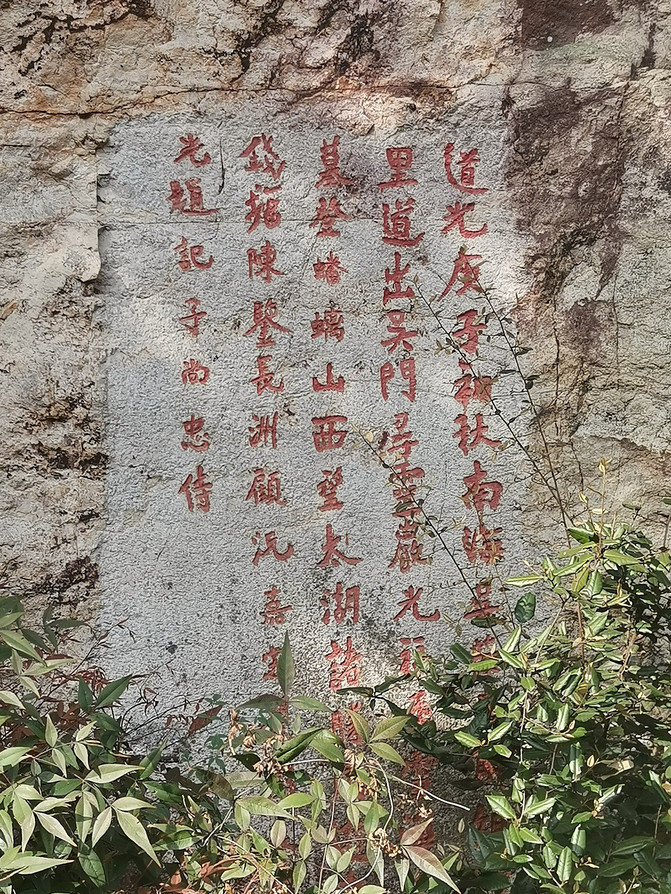 道光庚子初秋南海吳
里道出吳門尋靈巖光福
墓登蟠螭山西望太湖諸勝
錢塘陳鑒長洲顧沅嘉
光題記子尚忠侍